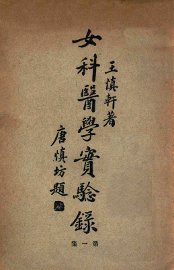 王慎軒著
女科醫學實驗錄
唐慎坊題
第一集